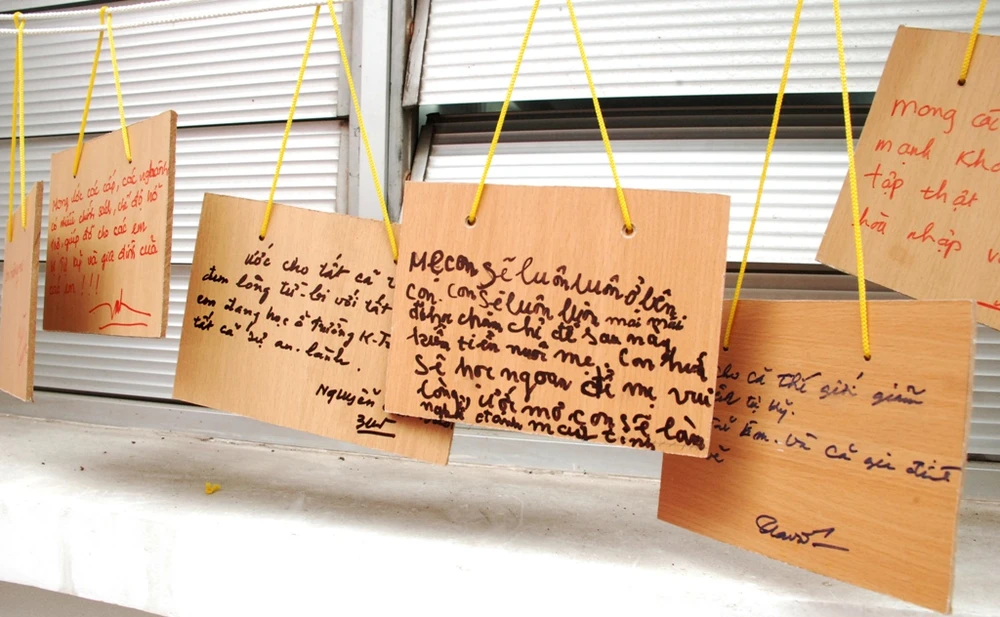 Mong ước các cấp, các ngành
có nhiều chính sách, chế độ hỗ
trợ, giúp đỡ cho các em
bị tự kỷ và gia đình của
các em !!!
Ước cho tất cả
đem lòng từ-bi với tất
em đang học ở trường K-T
tất cả sự an-lành.
Nguyễn
Mẹ con sẽ luôn luôn ở bên
con. con sẽ luôn luôn mãi mãi
được chăm chỉ để sau này
kiếm tiền nuôi mẹ. Con hứa
Sẽ học ngoan để mẹ vui
lòng, ước mơ con sẽ làm
nghề đánh máy tính
cho cả thế giới giảm
tự kỷ.
Em. Và cả gia đình
Mong cá
mạnh kho
tập thật
hòa nhập v